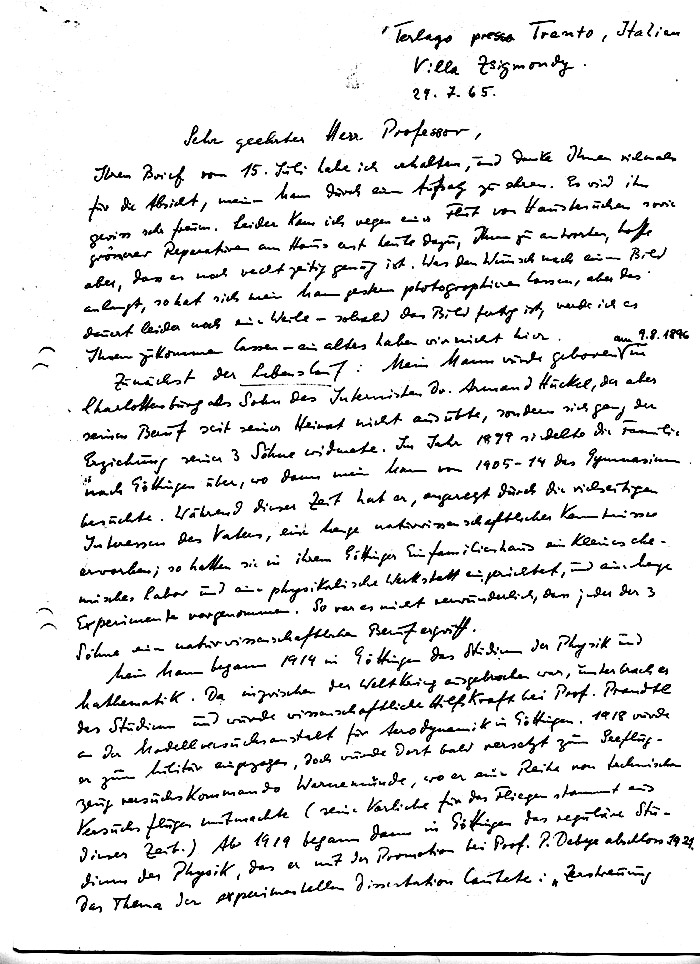 Terlago presso Trento, Italien
Villa Zsigmondy.
29. 7. 65.
Sehr geehrter Herr Professor,
Ihren Brief vom 15. Juli habe ich erhalten, und danke Ihnen vielmals
für die Absicht, meinen Mann durch einen Aufsatz zu ehren. Es wird ihn
gewiss sehr freuen. Leider kam ich wegen einer Flut von Hausbesuchen sowie
grösserer Reparaturen am Haus erst heute dazu, Ihnen zu antworten, hoffe
aber, dass es noch rechtzeitig genug ist. Was den Wunsch nach einem Bild
anlangt, so hat sich mein Mann gestern photographieren lassen, aber das
dauert leider noch eine Weile – sobald das Bild fertig ist, werde ich es
Ihnen zukommen lassen – ein altes haben wir nicht hier.
am 9.8.1896
Zunächst der Lebenslauf: Mein Mann wurde geboren in
Charlottenburg als Sohn des Internisten Dr. Armand Hückel, der aber
seinen Beruf seit seiner Heirat nicht ausübte, sondern sich ganz der
Erziehung seiner 3 Söhne widmete. Im Jahr 1899 siedelte die Familie
nach Göttingen über, wo dann mein Mann von 1905–14 das Gymnasium
besuchte. Während dieser Zeit hat er, angeregt durch die vielseitigen
Interessen des Vaters, eine Menge naturwissenschaftlicher Kenntnisse
erworben; so hatten sie in ihrem Göttinger Einfamilienhaus ein kleines che-
misches Labor und eine physikalische Werkstatt eingerichtet, und eine Menge
Experimente vorgenommen. So war es nicht verwunderlich, dass jeder der 3
Söhne einen naturwissenschaftlichen Beruf ergriff.
Mein Mann begann 1914 in Göttingen das Studium der Physik und
Mathematik. Da inzwischen der Weltkrieg ausgebrochen war, unterbrach er
das Studium und wurde wissenschaftliche Hilfskraft bei Prof. Prandtl
an der Modellversuchsanstalt für Aerodynamik in Göttingen. 1918 wurde
er zum Militär eingezogen, doch wurde dort bald versetzt zum Seeflug-
zeugversuchskommando Warnemünde, wo er eine Reihe von technischen
Versuchsflügen mitmachte (seine Vorliebe für das Fliegen stammt aus
dieser Zeit.) Ab 1919 begann dann in Göttingen das reguläre Stu-
dium der Physik, das er mit der Promotion bei Prof. P. Debye abschloss 1921.
Das Thema der experimentellen Dissertation lautete: „Zerstreuung